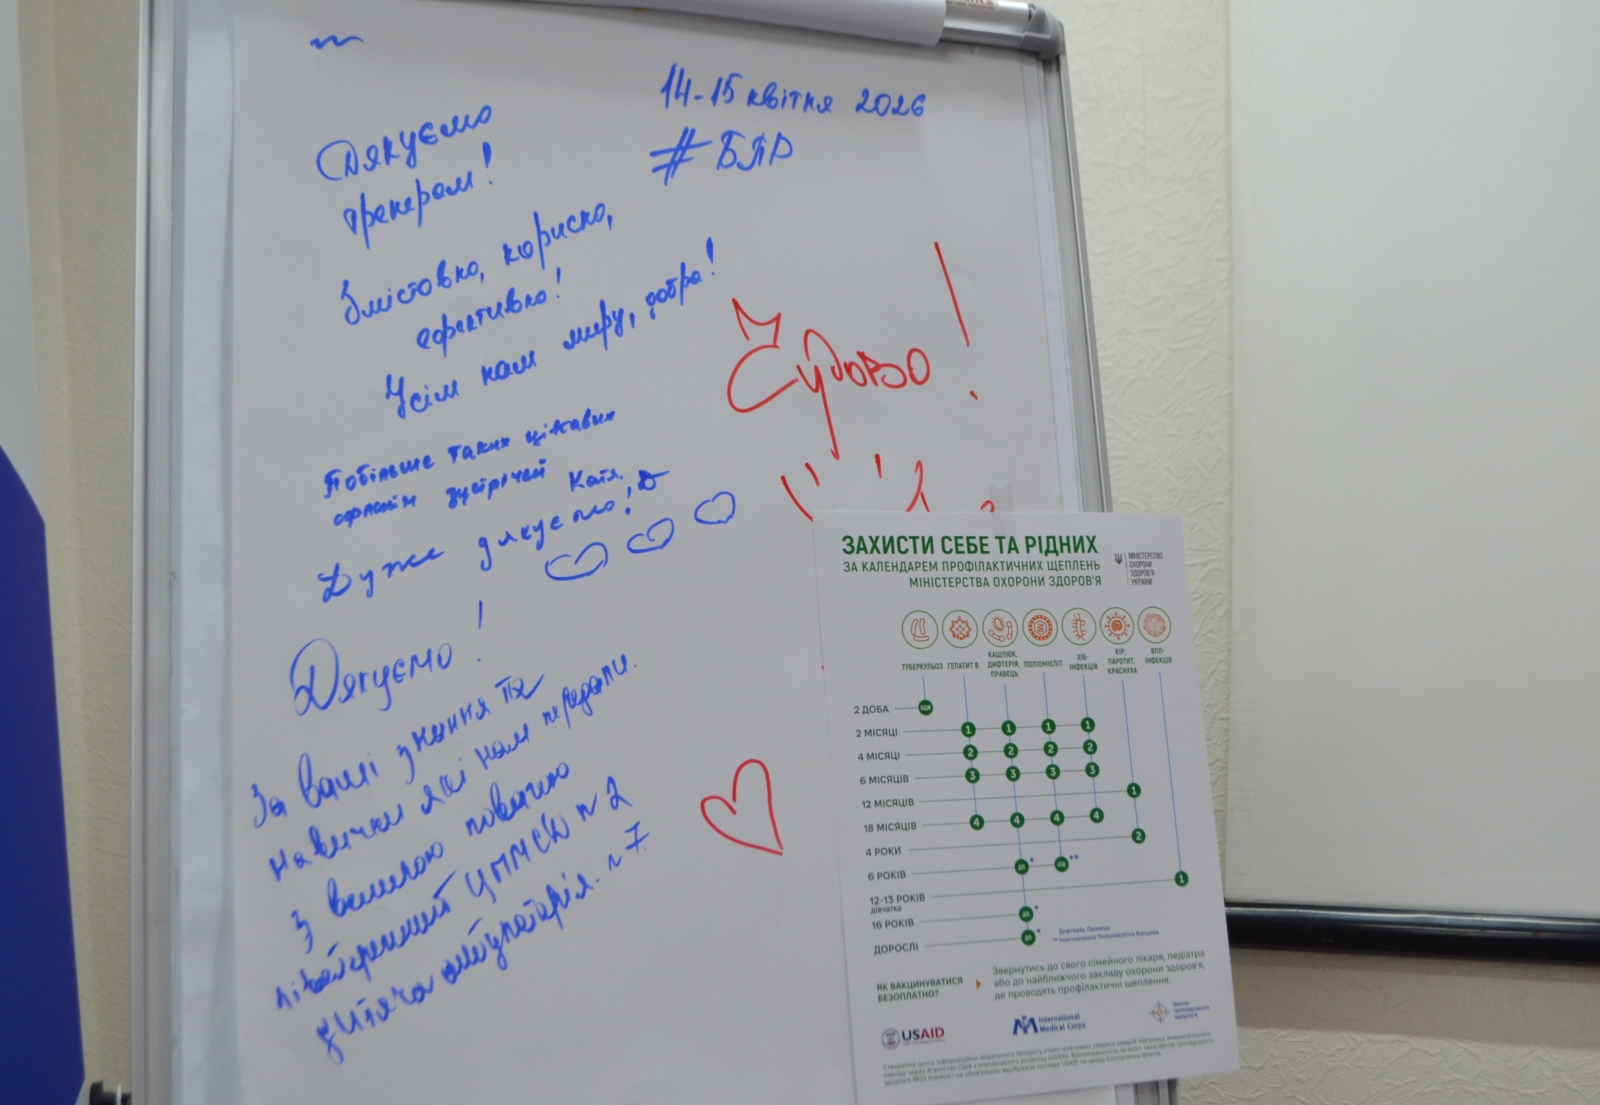 14-15 квітня 2026
# БПР
Дякуємо
тренерам!
Змістовно, корисно,
ефективно!
Усім нам миру, добра!
Чудово!
Побільше таких цікавих
офлайн зустрічей Катя.
Дуже дякуємо!
Дякуємо!
За ваші знання та
навички які нам передали.
З великою повагою
лікарський ЦПМСД №2
дитяча амбулаторія №7.
ЗАХИСТИ СЕБЕ ТА РІДНИХ
ЗА КАЛЕНДАРЕМ ПРОФІЛАКТИЧНИХ ЩЕПЛЕНЬ
МІНІСТЕРСТВА ОХОРОНИ ЗДОРОВ'Я
МІНІСТЕРСТВО
ОХОРОНИ
ЗДОРОВ'Я
УКРАЇНИ
ТУБЕРКУЛЬОЗ
ГЕПАТИТ В
КАШЛЮК,
ДИФТЕРІЯ,
ПРАВЕЦЬ
ПОЛІОМІЄЛІТ
ХІБ-
ІНФЕКЦІЯ
КІР,
ПАРОТИТ,
КРАСНУХА
ВПЛ-
ІНФЕКЦІЯ
2 ДОБА БЦЖ
2 МІСЯЦІ 1 1 1 1
4 МІСЯЦІ 2 2 2 2
6 МІСЯЦІВ 3 3 3 3
12 МІСЯЦІВ 1
18 МІСЯЦІВ 4 4 4 4
4 РОКИ 2
6 РОКІВ ДП * ІПВ **
12-13 РОКІВ 1
дівчатка
16 РОКІВ ДП *
ДОРОСЛІ ДП *
* Дифтерія, Правець
** Інактивована Поліомієлітна Вакцина
ЯК ВАКЦИНУВАТИСЯ
БЕЗОПЛАТНО?
Звернутись до свого сімейного лікаря, педіатра
або до найближчого закладу охорони здоров'я,
де проводять профілактичні щеплення.
USAID
International
Medical Corps
Центр
громадського
здоров'я